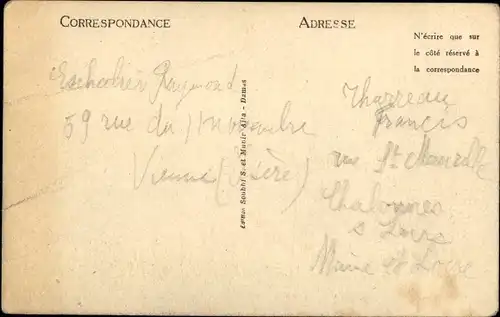 CORRESPONDANCE
ADRESSE
N'écrire que sur
le côté réservé à
la correspondance
Raymond
59 rue du 11 novembre
Vienne (Isère)
Edition Soubhi S. et Munir Aita - Damas
Tharreau
Francis
rue St Maurille
Chalonnes
s Loire
Maine et Loire